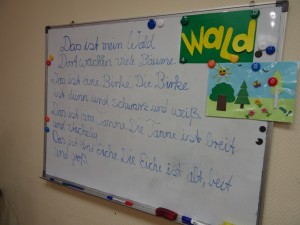 Wald
Das ist mein Wald
Dort wachsen viele Bäume.
Das ist eine Birke. Die Birke
ist dünn und schwarz und weiß.
Das ist eine Tanne. Die Tanne ist breit
und stachelig
Das ist eine Eiche. Die Eiche ist alt, breit
und groß.